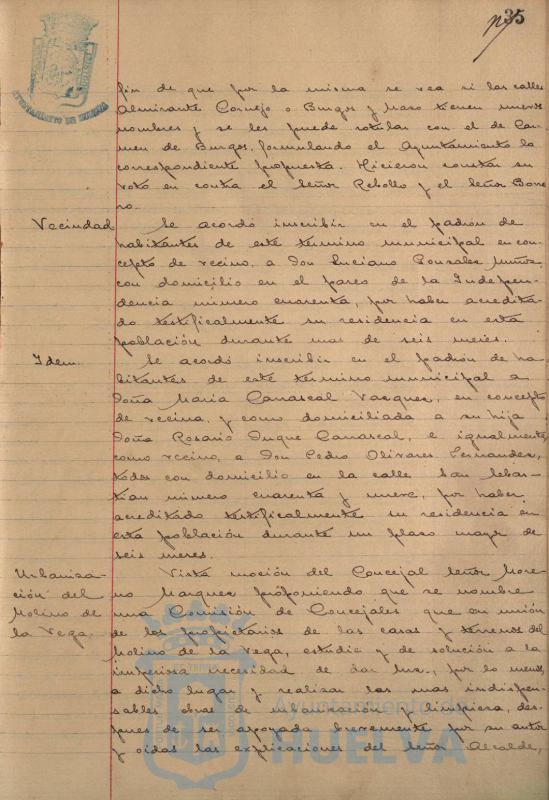 35
AYUNTAMIENTO DE HUELVA
fin de que por la misma se vea si las calles
Almirante Cornejo o Burgos y Mazo tienen nuevos
nombres y se les puede rotular con el de Car-
men de Burgos, formulando el Ayuntamiento la
correspondiente propuesta. Hicieron constar su
voto en contra el Señor Rebollo y el Señor Borre
ro.
Vecindad Se acordó inscribir en el padrón de
habitantes de este término municipal en con-
cepto de vecino, a Don Luciano Gonzalez Muñiz
con domicilio en el paseo de la Indepen-
dencia número cuarenta, por haber acredita-
do testificalmente su residencia en esta
población durante mas de seis meses.
Idem. Se acordó inscribir en el padrón de ha-
bitantes de este término municipal a
Doña Maria Carrascal Vazquez, en concepto
de vecina, y como domiciliada a su hija
Doña Rosario Duque Carrascal, e igualmente
como vecino, a Don Pedro Olivares Fernandez,
todos con domicilio en la calle San Sebas-
tian número cuarenta y nueve, por haber
acreditado testificalmente su residencia en
esta población durante un plazo mayor de
seis meses.
Urbaniza-
ción del
Molino de
la Vega.
Vista moción del Concejal Señor More-
no Marquez proponiendo que se nombre
una Comisión de Concejales que en unión
de los propietarios de las casas y terrenos del
Molino de la Vega, estudie y de solución a la
imperiosa necesidad de dar luz, por lo menos,
a dicho lugar y realizar las mas indispen-
sables obras de urbanización y limpieza, des-
pues de ser apoyada brevemente por su autor
y oidas las explicaciones del Señor Alcalde,
Ayuntamiento de
HUELVA